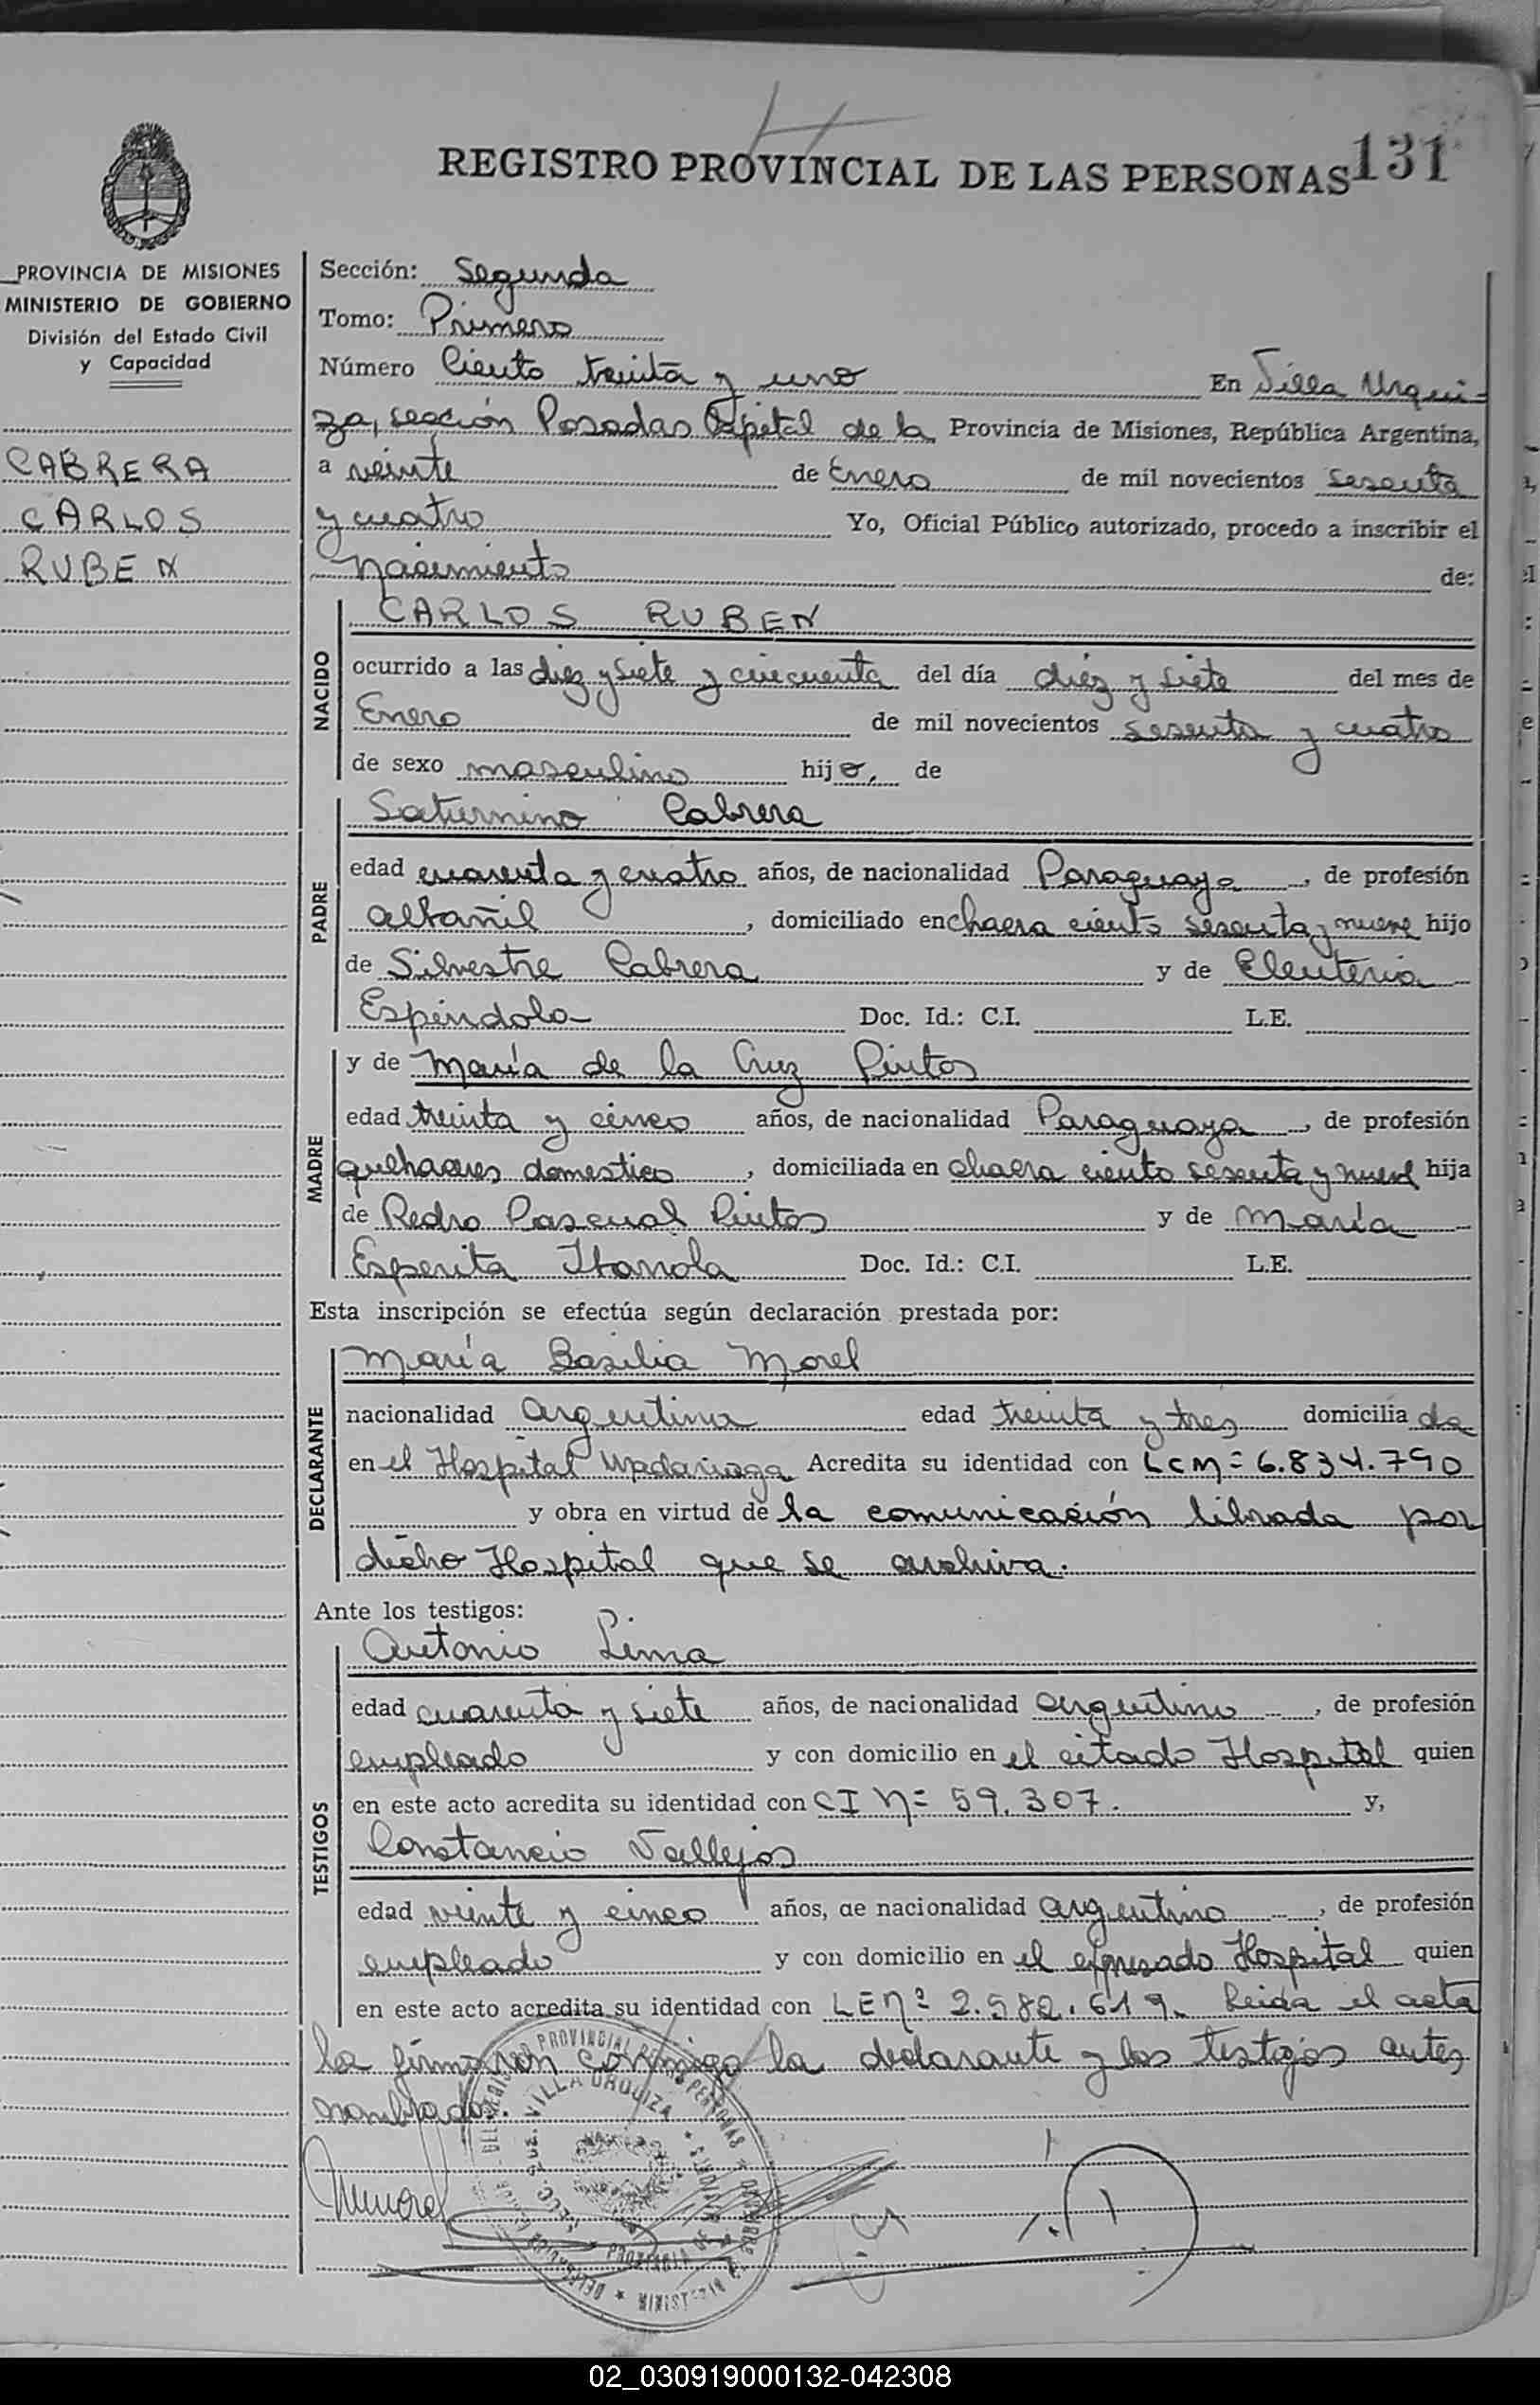 131
REGISTRO PROVINCIAL DE LAS PERSONAS
PROVINCIA DE MISIONES
MINISTERIO DE GOBIERNO
División del Estado Civil
y Capacidad
CABRERA
CARLOS
RUBEN
Sección: Segunda
Tomo: Primero
Número Ciento treinta y uno En Villa Urqui-
za, sección Posadas Capital de la Provincia de Misiones, República Argentina,
a veinte de Enero de mil novecientos sesenta
y cuatro Yo, Oficial Público autorizado, procedo a inscribir el
nacimiento de:
NACIDO
CARLOS RUBEN
ocurrido a las diez y siete y cincuenta del día diez y siete del mes de
Enero de mil novecientos sesenta y cuatro
de sexo masculino hijo, de
PADRE
Saturnino Cabrera
edad cuarenta y cuatro años, de nacionalidad Paraguaya, de profesión
albañil, domiciliado en chacra ciento sesenta y nueve hijo
de Silvestre Cabrera y de Eleuteria
Espindola Doc. Id.: C.I. L.E.
MADRE
y de María de la Cruz Pintos
edad treinta y cinco años, de nacionalidad Paraguaya, de profesión
quehaceres domestico, domiciliada en chacra ciento sesenta y nueve hija
de Pedro Pascual Pintos y de María
Esperita Doc. Id.: C.I. L.E.
Esta inscripción se efectúa según declaración prestada por:
DECLARANTE
María Basilia Morel
nacionalidad argentina edad treinta y tres domicilia da
en el Hospital Madariaga Acredita su identidad con LCM= 6.834.790
y obra en virtud de la comunicación librada por
dicho Hospital que se archiva.
Ante los testigos:
TESTIGOS
Antonio Lima
edad cuarenta y siete años, de nacionalidad argentino, de profesión
empleado y con domicilio en el citado Hospital quien
en este acto acredita su identidad con CI Nº 59.307. y,
Constancio Vallejos
edad veinte y cinco años, de nacionalidad argentino, de profesión
empleado y con domicilio en el expresado Hospital quien
en este acto acredita su identidad con LE nº 2.582.619. Leida el acta
la firmaron conmigo la declarante y los testigos antes
nombrados.
VILLA URQUIZA
02_030919000132-042308